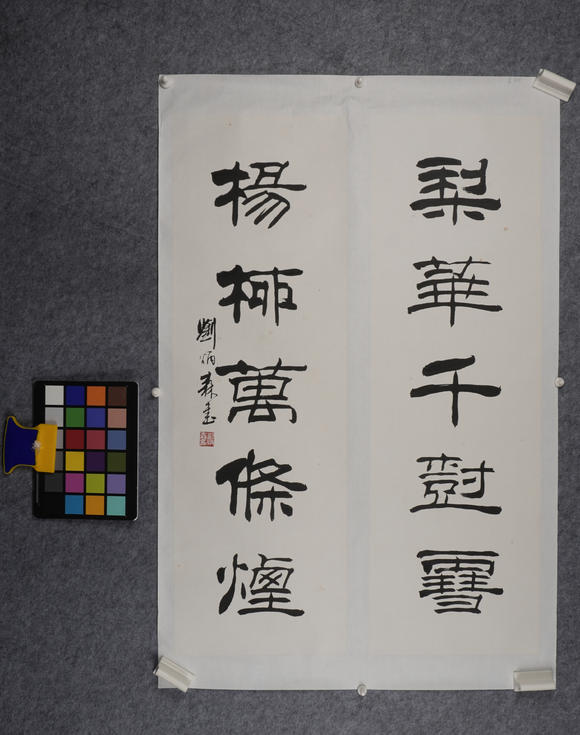 梨華千尌雪
楊栁萬條煙
劉炳森書